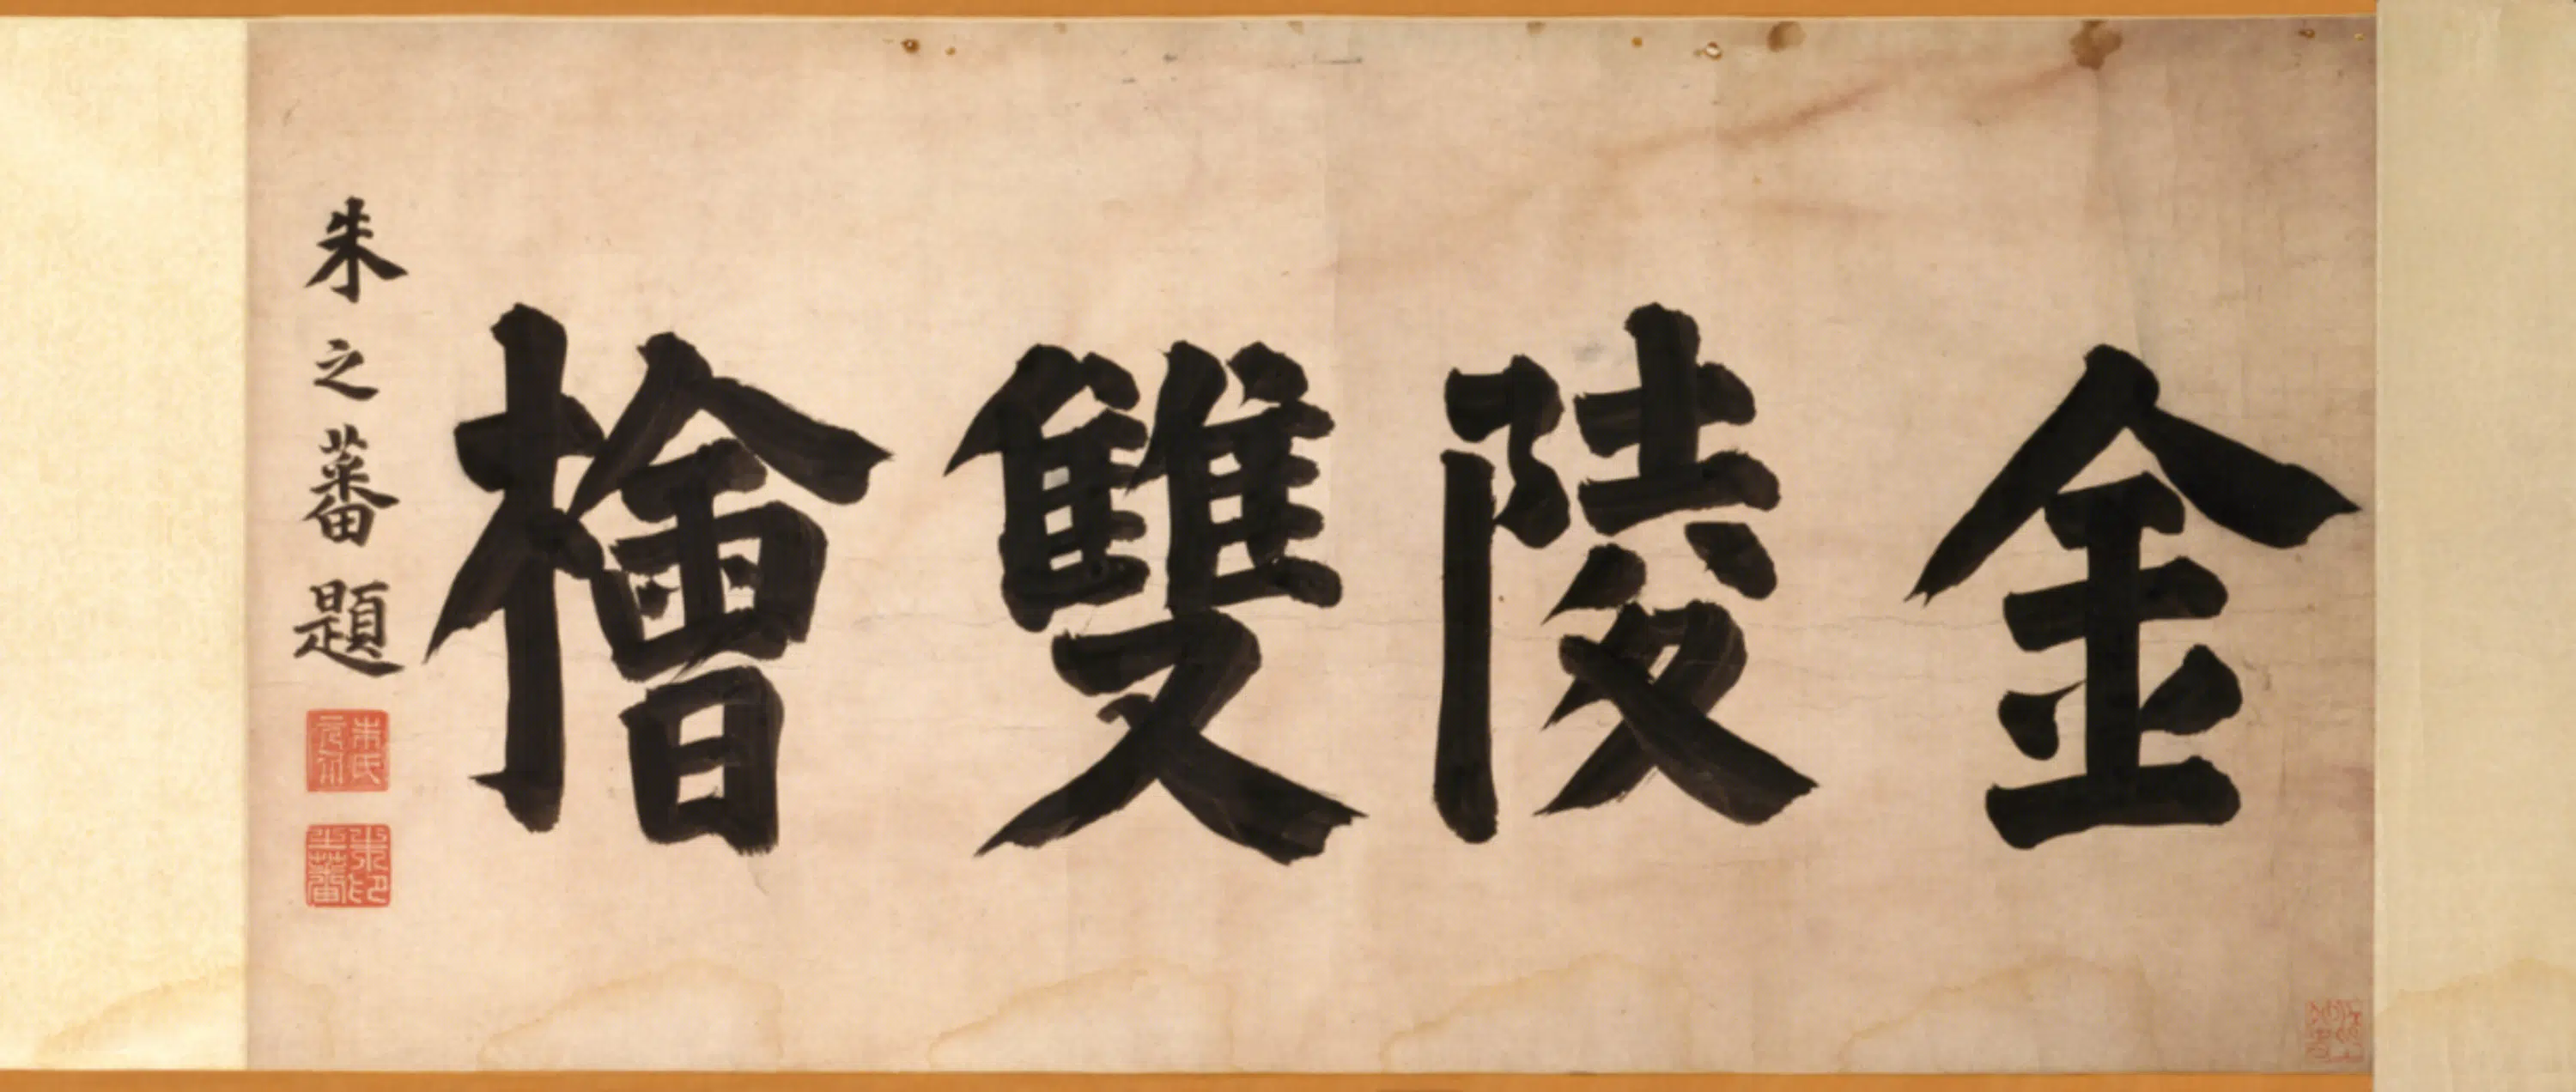 金陵雙檜
朱之蕃題
朱氏元介
朱之蕃印